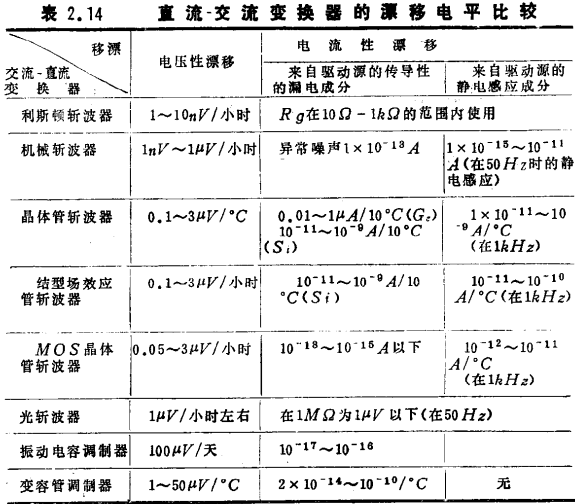 表 2.14 直流-交流变换器的漂移电平比较
移漂
交流-直流
变换器
电压性漂移
电流性漂移
来自驱动源的传导性
的漏电成分
来自驱动源的
静电感应成分
利斯顿斩波器 1～10nV/小时 Rg在10Ω－1kΩ的范围内使用
机械斩波器 1nV～1μV/小时 异常噪声1×10⁻¹³A 1×10⁻¹⁵～10⁻¹¹
A(在50Hz时的静
电感应)
晶体管斩波器 0.1～3μV/°C 0.01～1μA/10°C(Gₑ) 1×10⁻¹¹～10
10⁻¹¹～10⁻⁹A/10°C ⁻⁹A/°C
(Si) (在1kHz)
结型场效应 0.1～3μV/小时 10⁻¹¹～10⁻⁹A/10 10⁻¹¹～10⁻¹⁰
管斩波器 °C(Si) A/°C(在1kHz)
MOS晶体 0.05～3μV/小时 10⁻¹⁸～10⁻¹⁵A以下 10⁻¹²～10⁻¹¹
管斩波器 A/°C
(在1kHz)
光斩波器 1μV/小时左右 在1MΩ为1μV以下(在50Hz)
振动电容调制器 100μV/天 10⁻¹⁷～10⁻¹⁶
变容管调制器 1～50μV/°C 2×10⁻¹⁴～10⁻¹⁰/°C 无